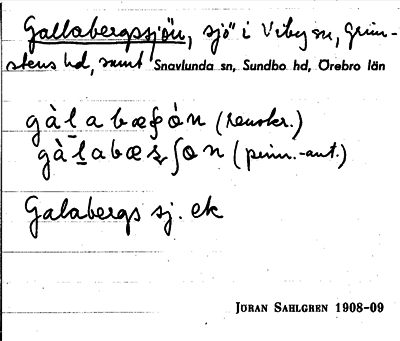 Gallabergssjön, sjö i Viby sn, Grim-
stens hd, samt Snavlunda sn, Sundbo hd, Örebro län
(renskr.)
(prim.-ant.)
Galabergs sj. ek
JÖRAN SAHLGREN 1908-09